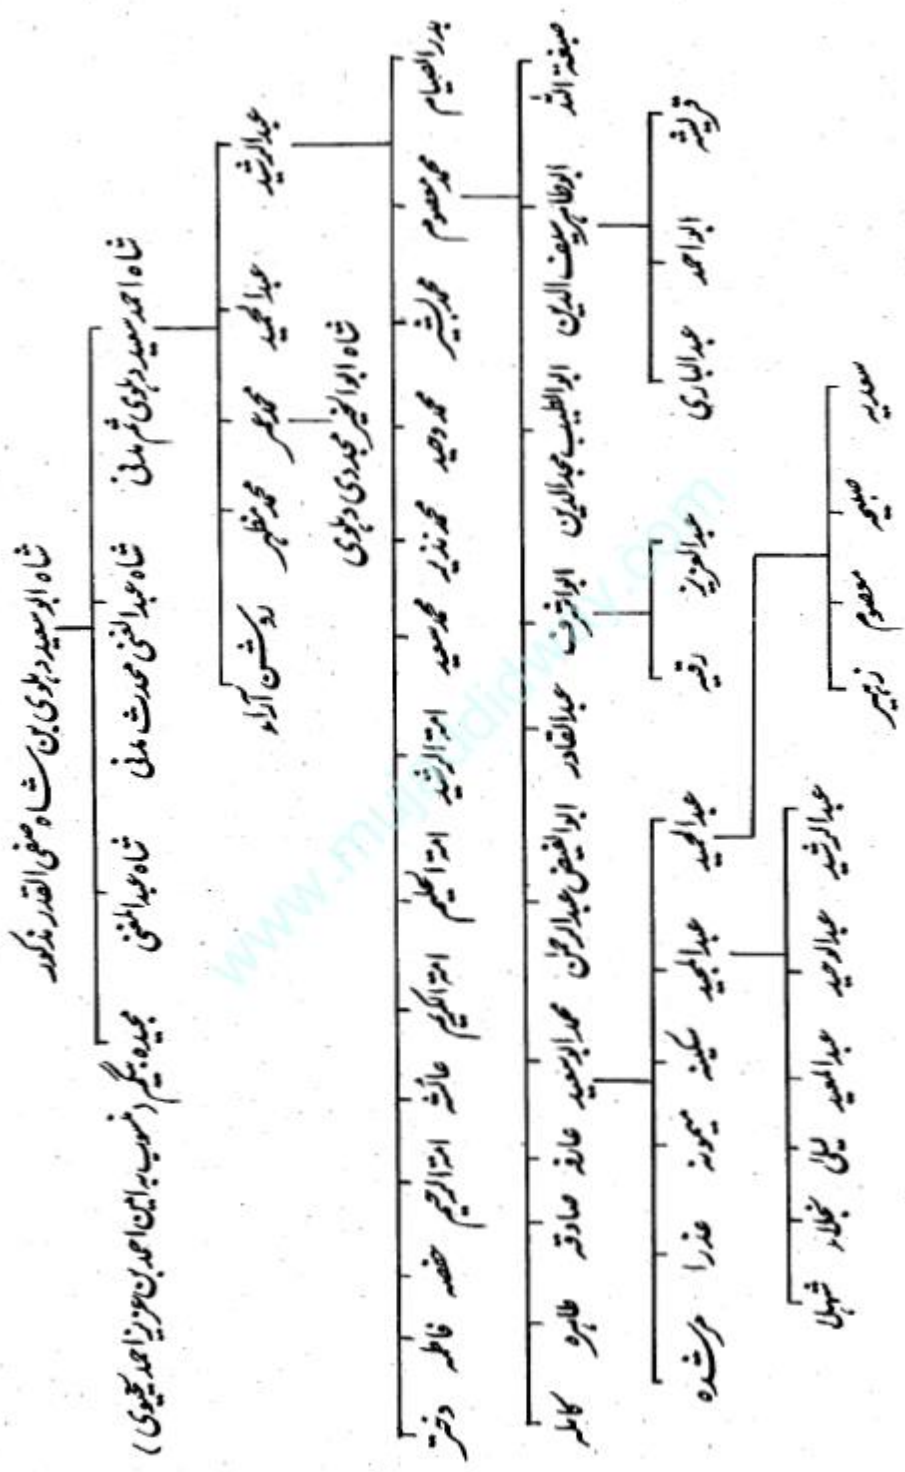 شاہ ابو سعید دہلوی بن شاہ صفی القدر مذکور
شاہ احمد سعید دہلوی ثم مدنی شاہ عبدالغنی محدث مدنی شاہ عبدالمغنی مجیدہ بیگم (منسوب بہ امین احمد بن عزیز احمد یحیوی)
عبدالرشید عبدالحمید محمد عمر محمد مظہر روشن آراء
شاہ ابوالخیر مجددی دہلوی
بدرالصیام محمد معصوم محمد بشیر محمد وحید محمد نذیر محمد سعید امۃ الرشید امۃ الحلیم امۃ الکریم عائشہ امۃ الرحیم حفصہ فاطمہ دختر
صبغۃ اللہ ابوطاہر سیف الدین ابوالطیب مجدالدین ابواشرف عبدالقادر ابوالفیض عبدالرحمٰن محمد ابوسعید عارفہ صادقہ طاہرہ کاملہ
قریشہ ابو احمد عبدالباری
عبدالعزیز رقیہ
عبدالحمید عبدالمجید سکینہ میمونہ عذرا مرشدہ
سعدیہ صلیحہ معصوم زہیر
عبدالرشید عبدالوحید عبدالمعید لیلیٰ نجلاء شہلا
www.mujadidway.com